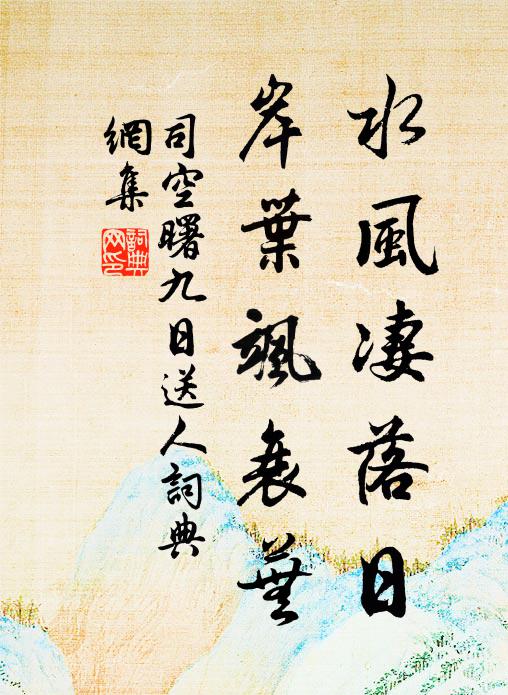 水風淒落日
岸葉颯衰蕪
司空曙九日送人詞典
網集
詞典
網印